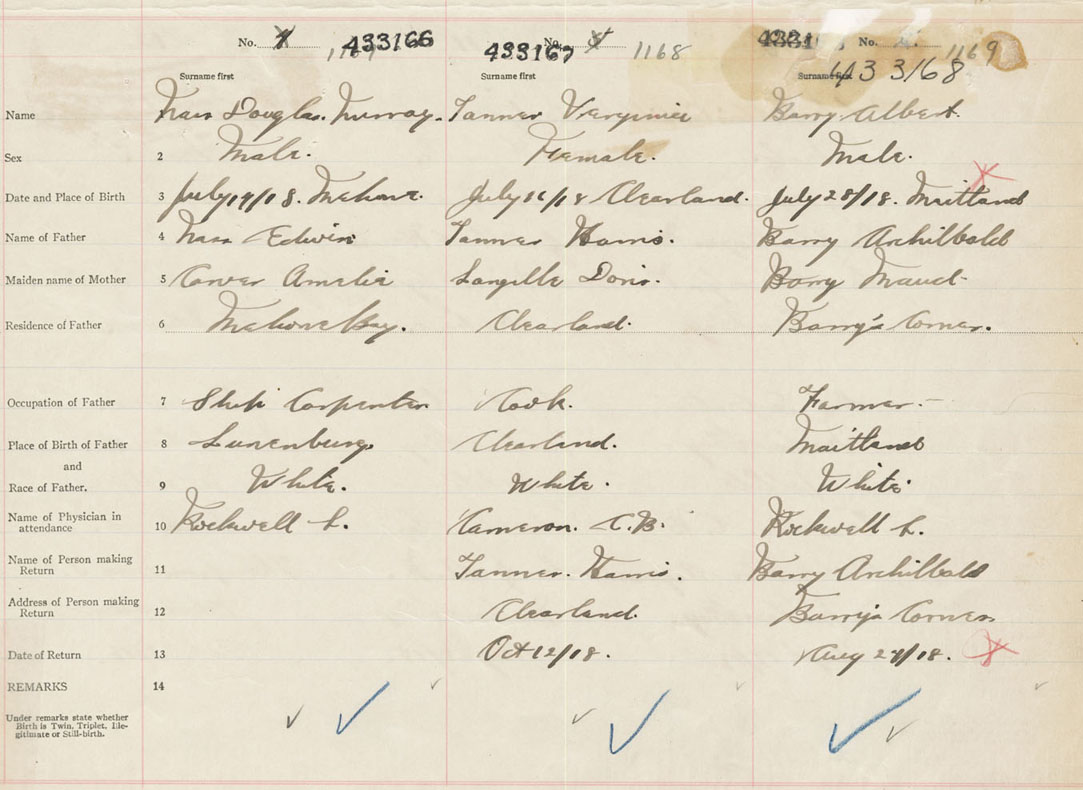 No. 433166
No. 433167 1168
No. 1169
433168
Surname first Surname first Surname first
Name Douglas Murray. Tanner Barry Albert.
Sex 2 Male. Female. Male.
Date and Place of Birth 3 July 19/18. Mahone. July /18 Clearland. July 28/18. Maitland
Name of Father 4 Edwin Tanner Harris. Barry Archilbald
Maiden name of Mother 5 Carver Amelia Langille Doris. Barry Maud
Residence of Father 6 Mahone Bay. Clearland. Barry's Corner.
Occupation of Father 7 Ship Carpenter Cook. Farmer.
Place of Birth of Father 8 Lunenburg Clearland. Maitland
and
Race of Father. 9 White. White. White.
Name of Physician in attendance 10 Rockwell L. Cameron. C.B. Rockwell L.
Name of Person making Return 11 Tanner. Harris. Barry Archilbald
Address of Person making Return 12 Clearland. Barry's Corner
Date of Return 13 Oct 12/18. Aug 29/18.
REMARKS 14
Under remarks state whether
Birth is Twin, Triplet, Ille-
gitimate or Still-birth.